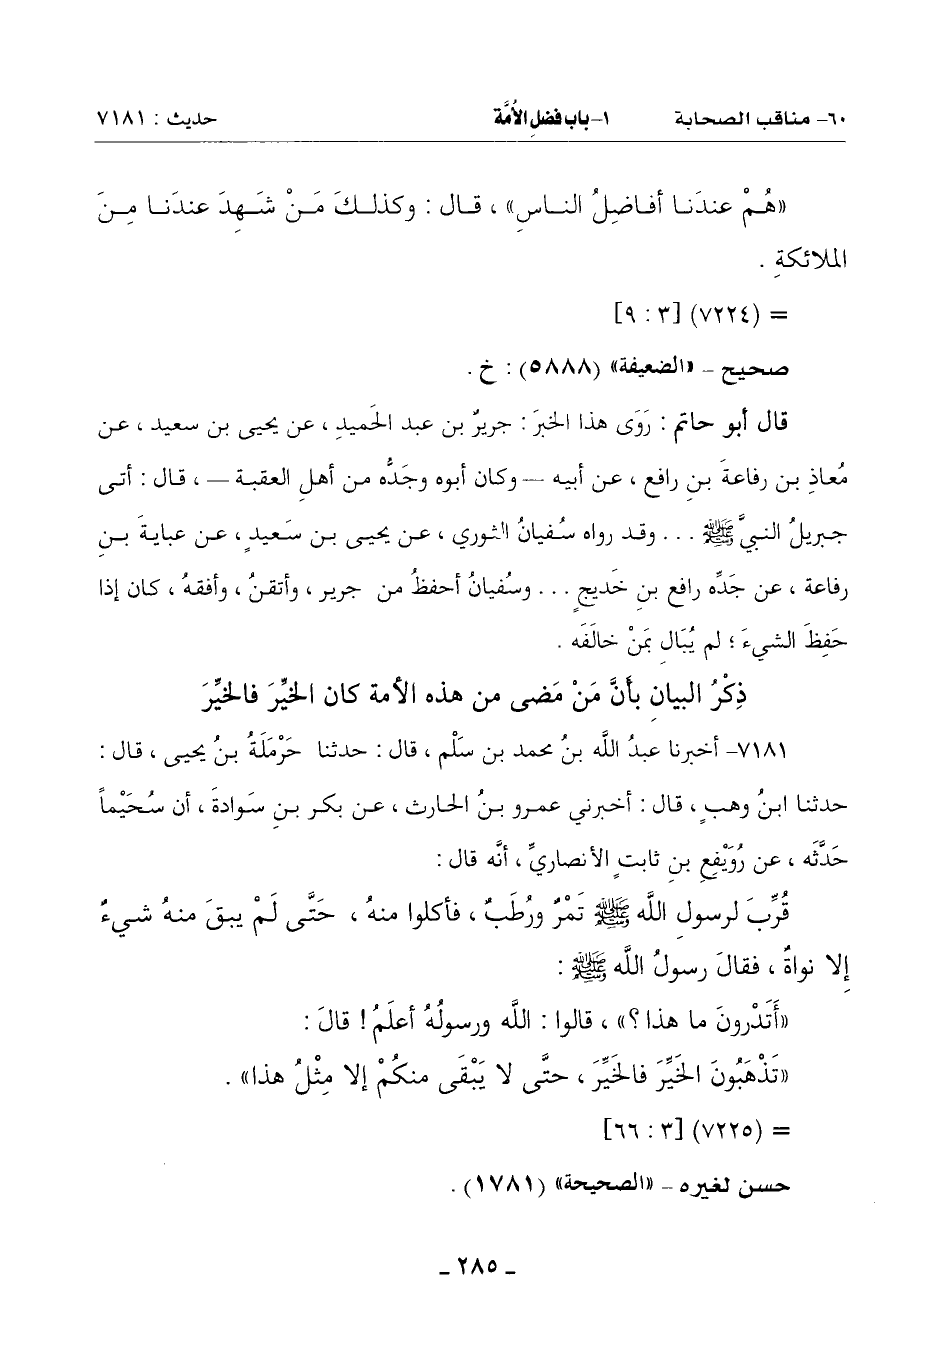 ٦٠- مناقب الصحابة ١- باب فضلِ الأُمَّة حديث : ٧١٨١
«هُمْ عندَنا أفاضِلُ الناسِ» ، قال : وكذلكَ مَنْ شَهِدَ عندَنا مِنَ
الملائكةِ .
= (٧٢٢٤) [٣ : ٩]
صحيح - «الضعيفة» (٥٨٨٨) : خ .
قال أبو حاتم : رَوَى هذا الخبرَ : جريرُ بن عبد الحَميدِ ، عن يحيى بن سعيد ، عن
مُعاذِ بن رفاعةَ بنِ رافعٍ ، عن أبيه — وكان أبوه وجَدُّه من أهلِ العقبة — ، قال : أتى
جبريلُ النبيَّ ﷺ ... وقد رواه سُفيانُ الثوري ، عن يحيى بن سَعيدٍ ، عن عبايةَ بنِ
رفاعة ، عن جَدِّه رافعِ بنِ خَديجٍ ... وسُفيانُ أحفظُ من جرير ، وأتقنُ ، وأفقهُ ، كان إذا
حَفِظَ الشيءَ ؛ لم يُبَالِ بمَنْ خالَفَه .
ذِكْرُ البيانِ بأنَّ مَنْ مَضى من هذه الأمة كان الخيِّرَ فالخيِّرَ
٧١٨١- أخبرنا عبدُ اللَّه بنُ محمد بن سَلْم ، قال : حدثنا حَرْمَلَةُ بنُ يحيى ، قال :
حدثنا ابنُ وهبٍ ، قال : أخبرني عمرو بنُ الحارث ، عن بكر بنِ سَوادةَ ، أن سُحَيْماً
حَدَّثَه ، عن رُوَيْفِعِ بنِ ثابتٍ الأنصاريِّ ، أنَّه قال :
قُرِّبَ لرسولِ اللَّه ﷺ تَمْرٌ ورُطَبٌ ، فأكلوا منهُ ، حَتَّى لَمْ يبقَ منهُ شيءٌ
إلا نواةٌ ، فقالَ رسولُ اللَّه ﷺ :
«أَتَدْرونَ ما هذا ؟» ، قالوا : اللَّه ورسولُهُ أعلَمُ ! قالَ :
«تَذْهَبُونَ الخَيِّرَ فالخَيِّرَ ، حتَّى لا يَبْقَى منكُمْ إلا مِثْلُ هذا» .
= (٧٢٢٥) [٣ : ٦٦]
حسن لغيره - «الصحيحة» (١٧٨١) .
- ٢٨٥ -